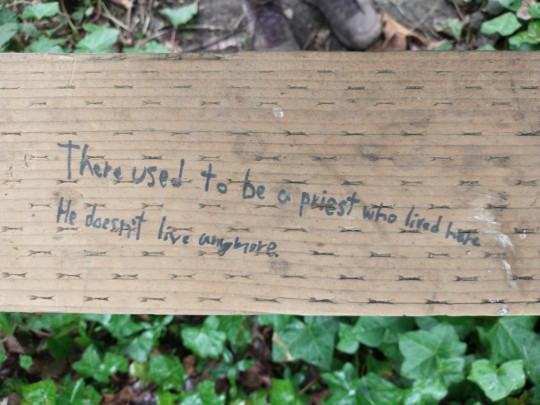 There used to be a priest who lived here
He doesn't live anymore.